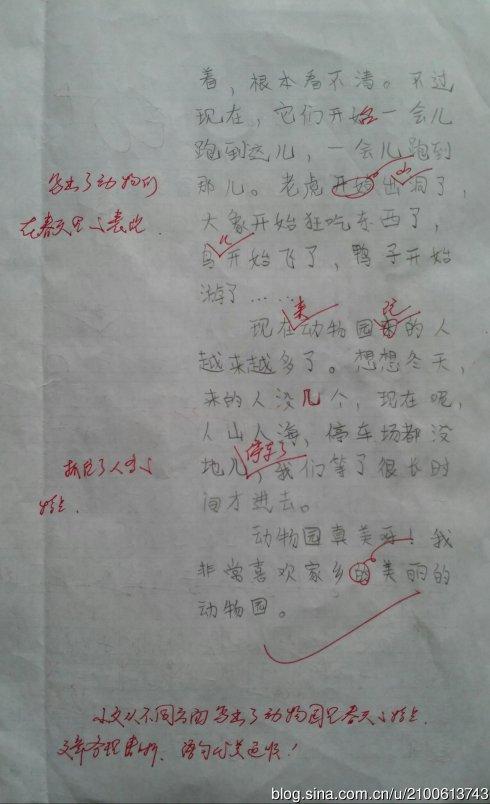 着，根本看不清。不过
现在，它们开始一会儿
跑到这儿，一会儿跑到
那儿。老虎开始出洞了，
山
写出了动物们
在春天里的表现.
大象开始狂吃东西了，
儿
鸟开始飞了，鸭子开始
游了……
来 玩
现在动物园的人
越来越多了。想想冬天，
来的人没几个，现在呢，
人山人海，停车场都没
停车了
地儿，我们等了很长时
间才进去。
抓住了人多的
特点.
动物园真美呀！我
非常喜欢家乡的美丽的
动物园。
小文从不同方面写出了动物园里春天的特点.
文章条理清晰，语句优美通顺！
blog.sina.com.cn/u/2100613743